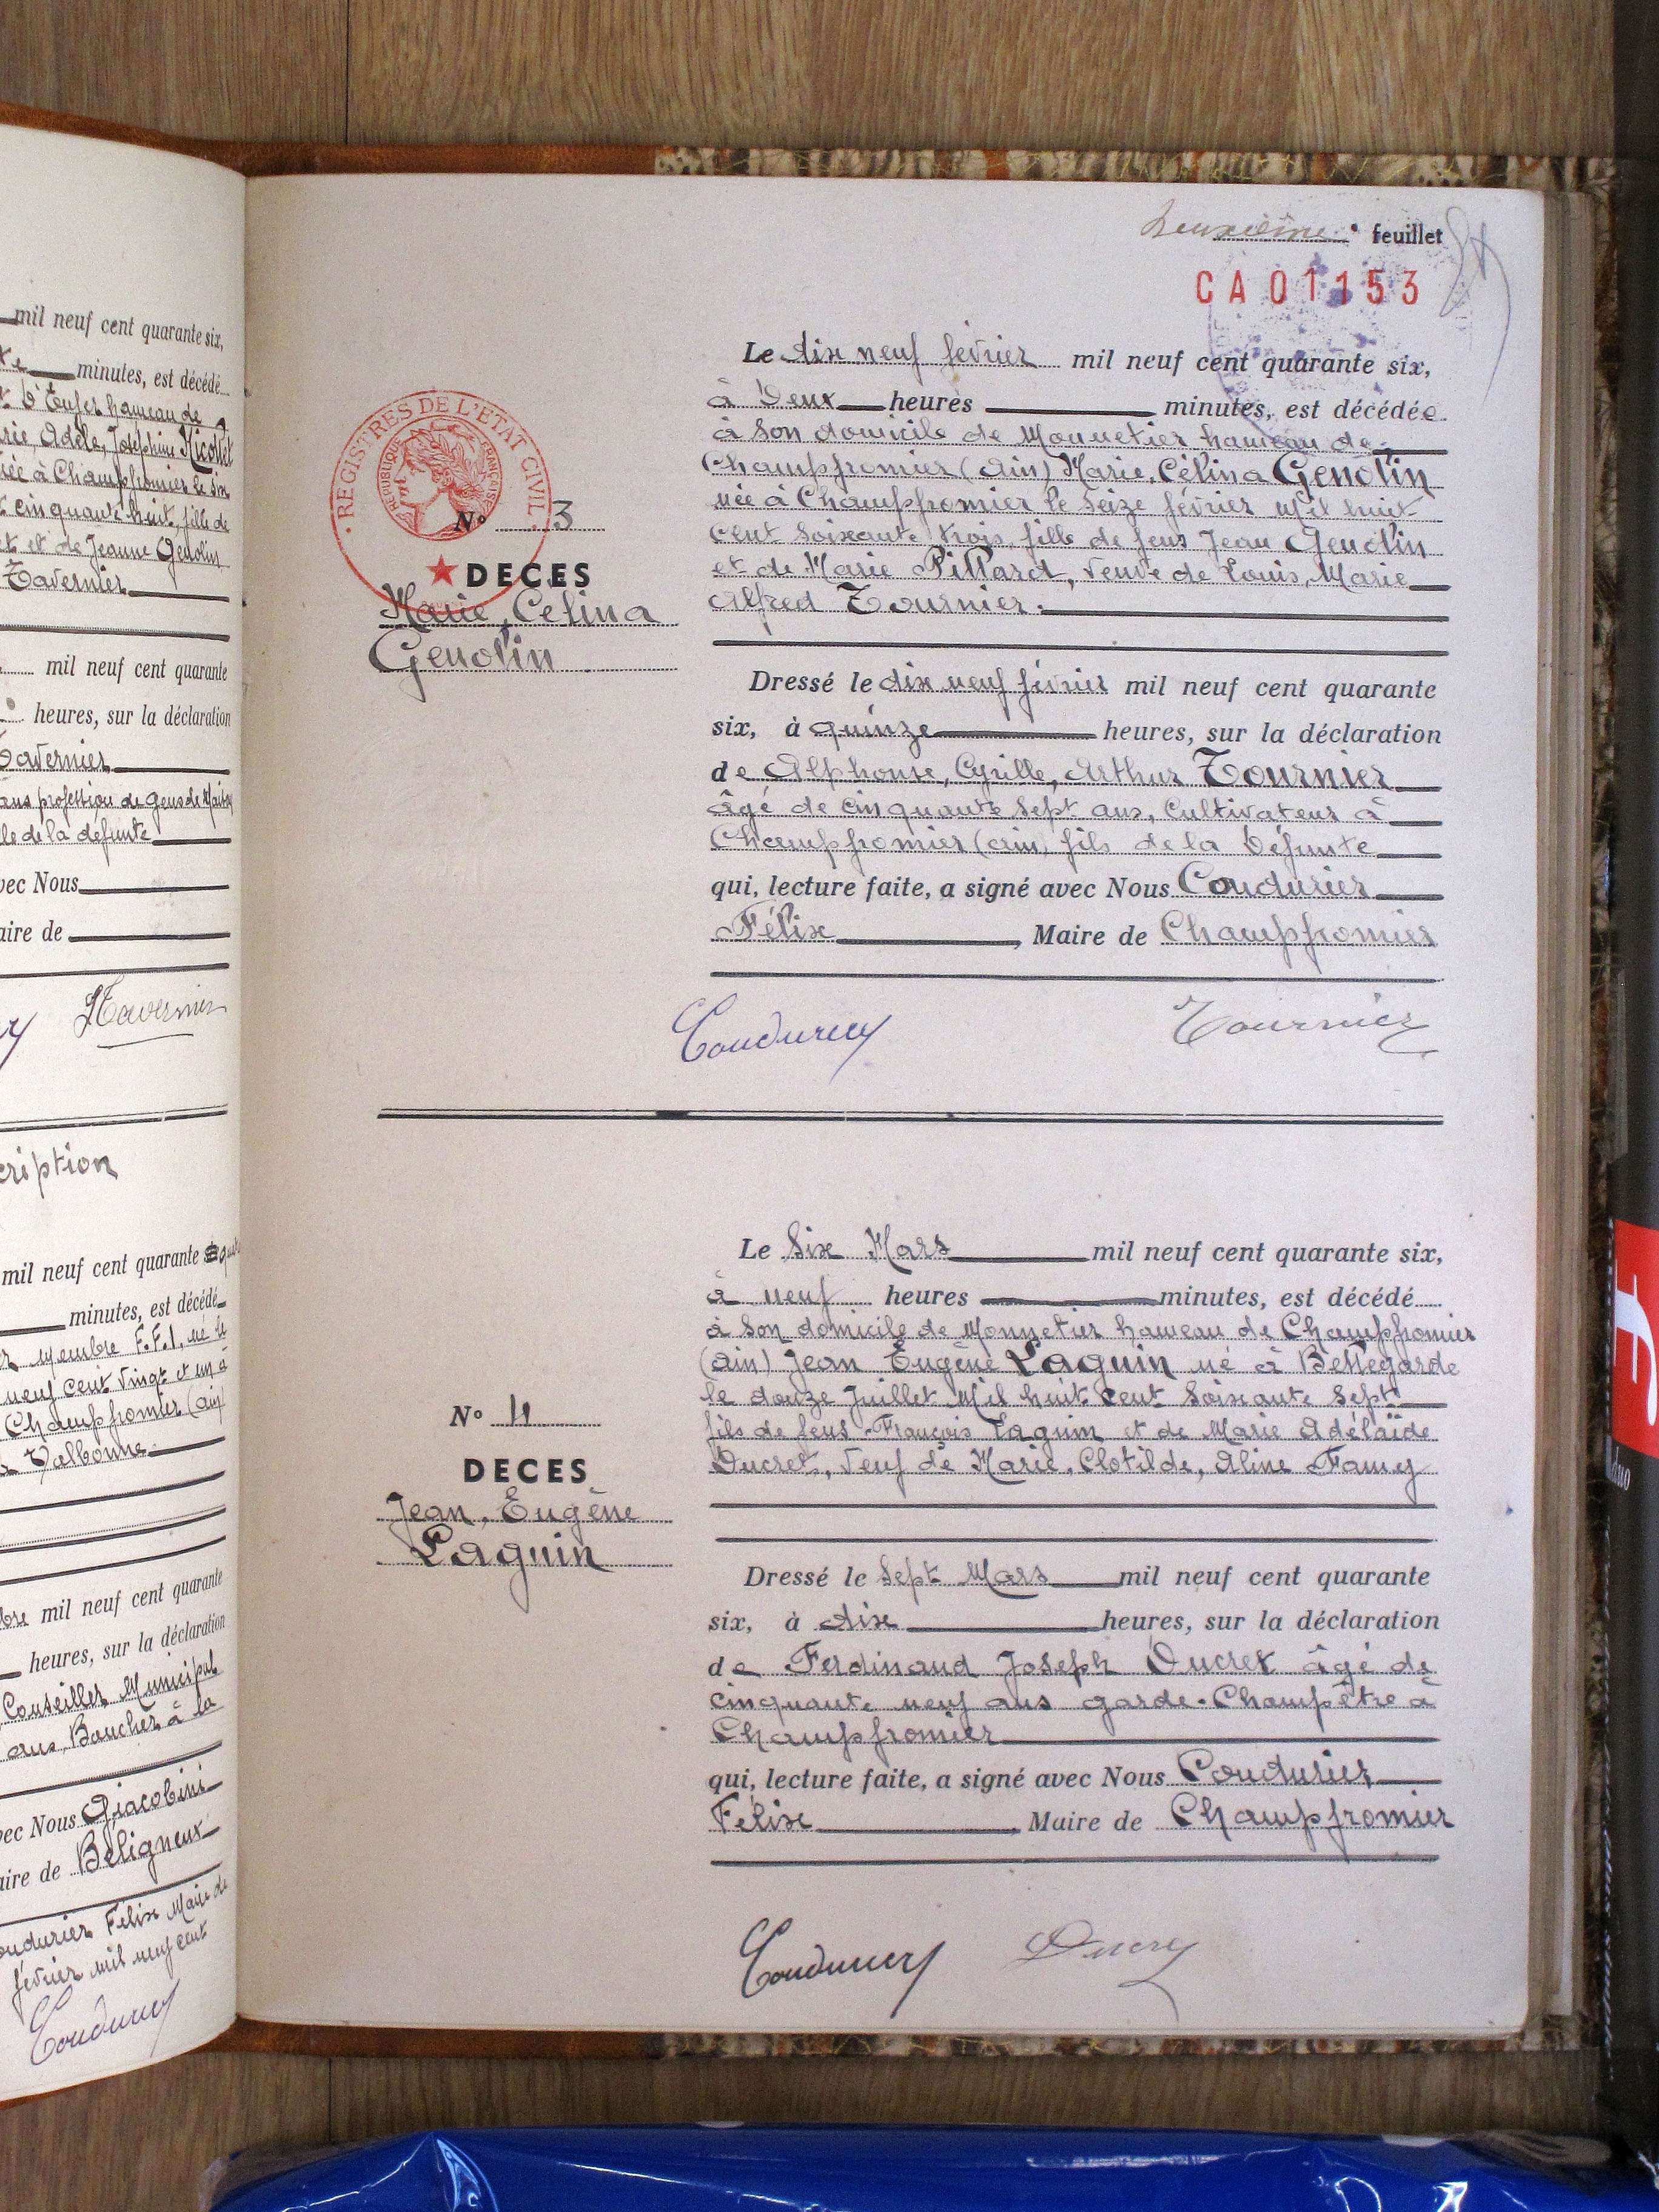 mil neuf cent quarante six,
minutes, est décédé
hameau de
Adèle, Joséphine
née à Champfromier le six
cinquante huit, fille de
et de Jeanne Genolin
Tavernier
mil neuf cent quarante
heures, sur la déclaration
Tavernier
profession de gens de
de la défunte
vec Nous
aire de
Tavernier
cription
mil neuf cent quarante
minutes, est décédé
Membre F.F.I, né le
neuf cent vingt et un à
Champfromier (ain)
Valbonne
mil neuf cent quarante
heures, sur la déclaration
Conseiller Municipal
ans, Boucher à la
vec Nous Giacobini
aire de Béligneux
oudurier Félix Maire de
février mil neuf cent
Coudurier
Deuxième feuillet
CA01153
REGISTRES DE L'ETAT CIVIL
REPUBLIQUE FRANÇAISE
N° 3
DECES
Marie, Célina
Genolin
Le dix neuf février mil neuf cent quarante six,
à Deux heures minutes, est décédée
à son domicile de Monnetier hameau de
Champfromier (Ain) Marie, Célina Genolin
née à Champfromier le seize février Mil huit
cent soixante trois, fille de feus Jean Genolin
et de Marie Pillard, veuve de Louis, Marie
Alfred Tournier.
Dressé le dix neuf février mil neuf cent quarante
six, à quinze heures, sur la déclaration
de Alphonse, Cyrille, Arthur Tournier
âgé de cinquante sept ans, Cultivateur à
Champfromier (ain) fils de la Défunte
qui, lecture faite, a signé avec Nous Coudurier
Félix, Maire de Champfromier
Coudurier Tournier
N° 4
DECES
Jean, Eugène
Laguin
Le Six Mars mil neuf cent quarante six,
à neuf heures minutes, est décédé
à son domicile de Monnetier hameau de Champfromier
(ain) Jean Eugène Laguin né à Bellegarde
le douze Juillet Mil huit cent soixante sept
fils de feus François Laguin et de Marie Adélaïde
Ducret, veuf de Marie, Clotilde, Aline Famy
Dressé le Sept Mars mil neuf cent quarante
six, à dix heures, sur la déclaration
de Ferdinand Joseph Ducret âgé de
cinquante neuf ans garde-Champêtre à
Champfromier
qui, lecture faite, a signé avec Nous Coudurier
Félix, Maire de Champfromier
Coudurier Ducret